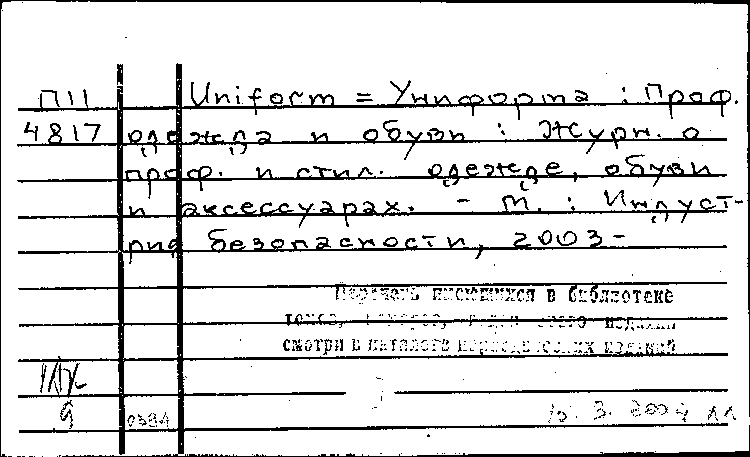 П11 Uniform = Униформа : Проф.
4817 одежда и обувь : Журн. о
проф. и стил. одежде, обуви
и аксессуарах. - М. : Индуст-
рия безопасности, 2003-
Перечень имеющихся в библиотеке
томов, номеров, годов этого издания
смотри в каталоге периодических изданий
9
10. 3. 2004